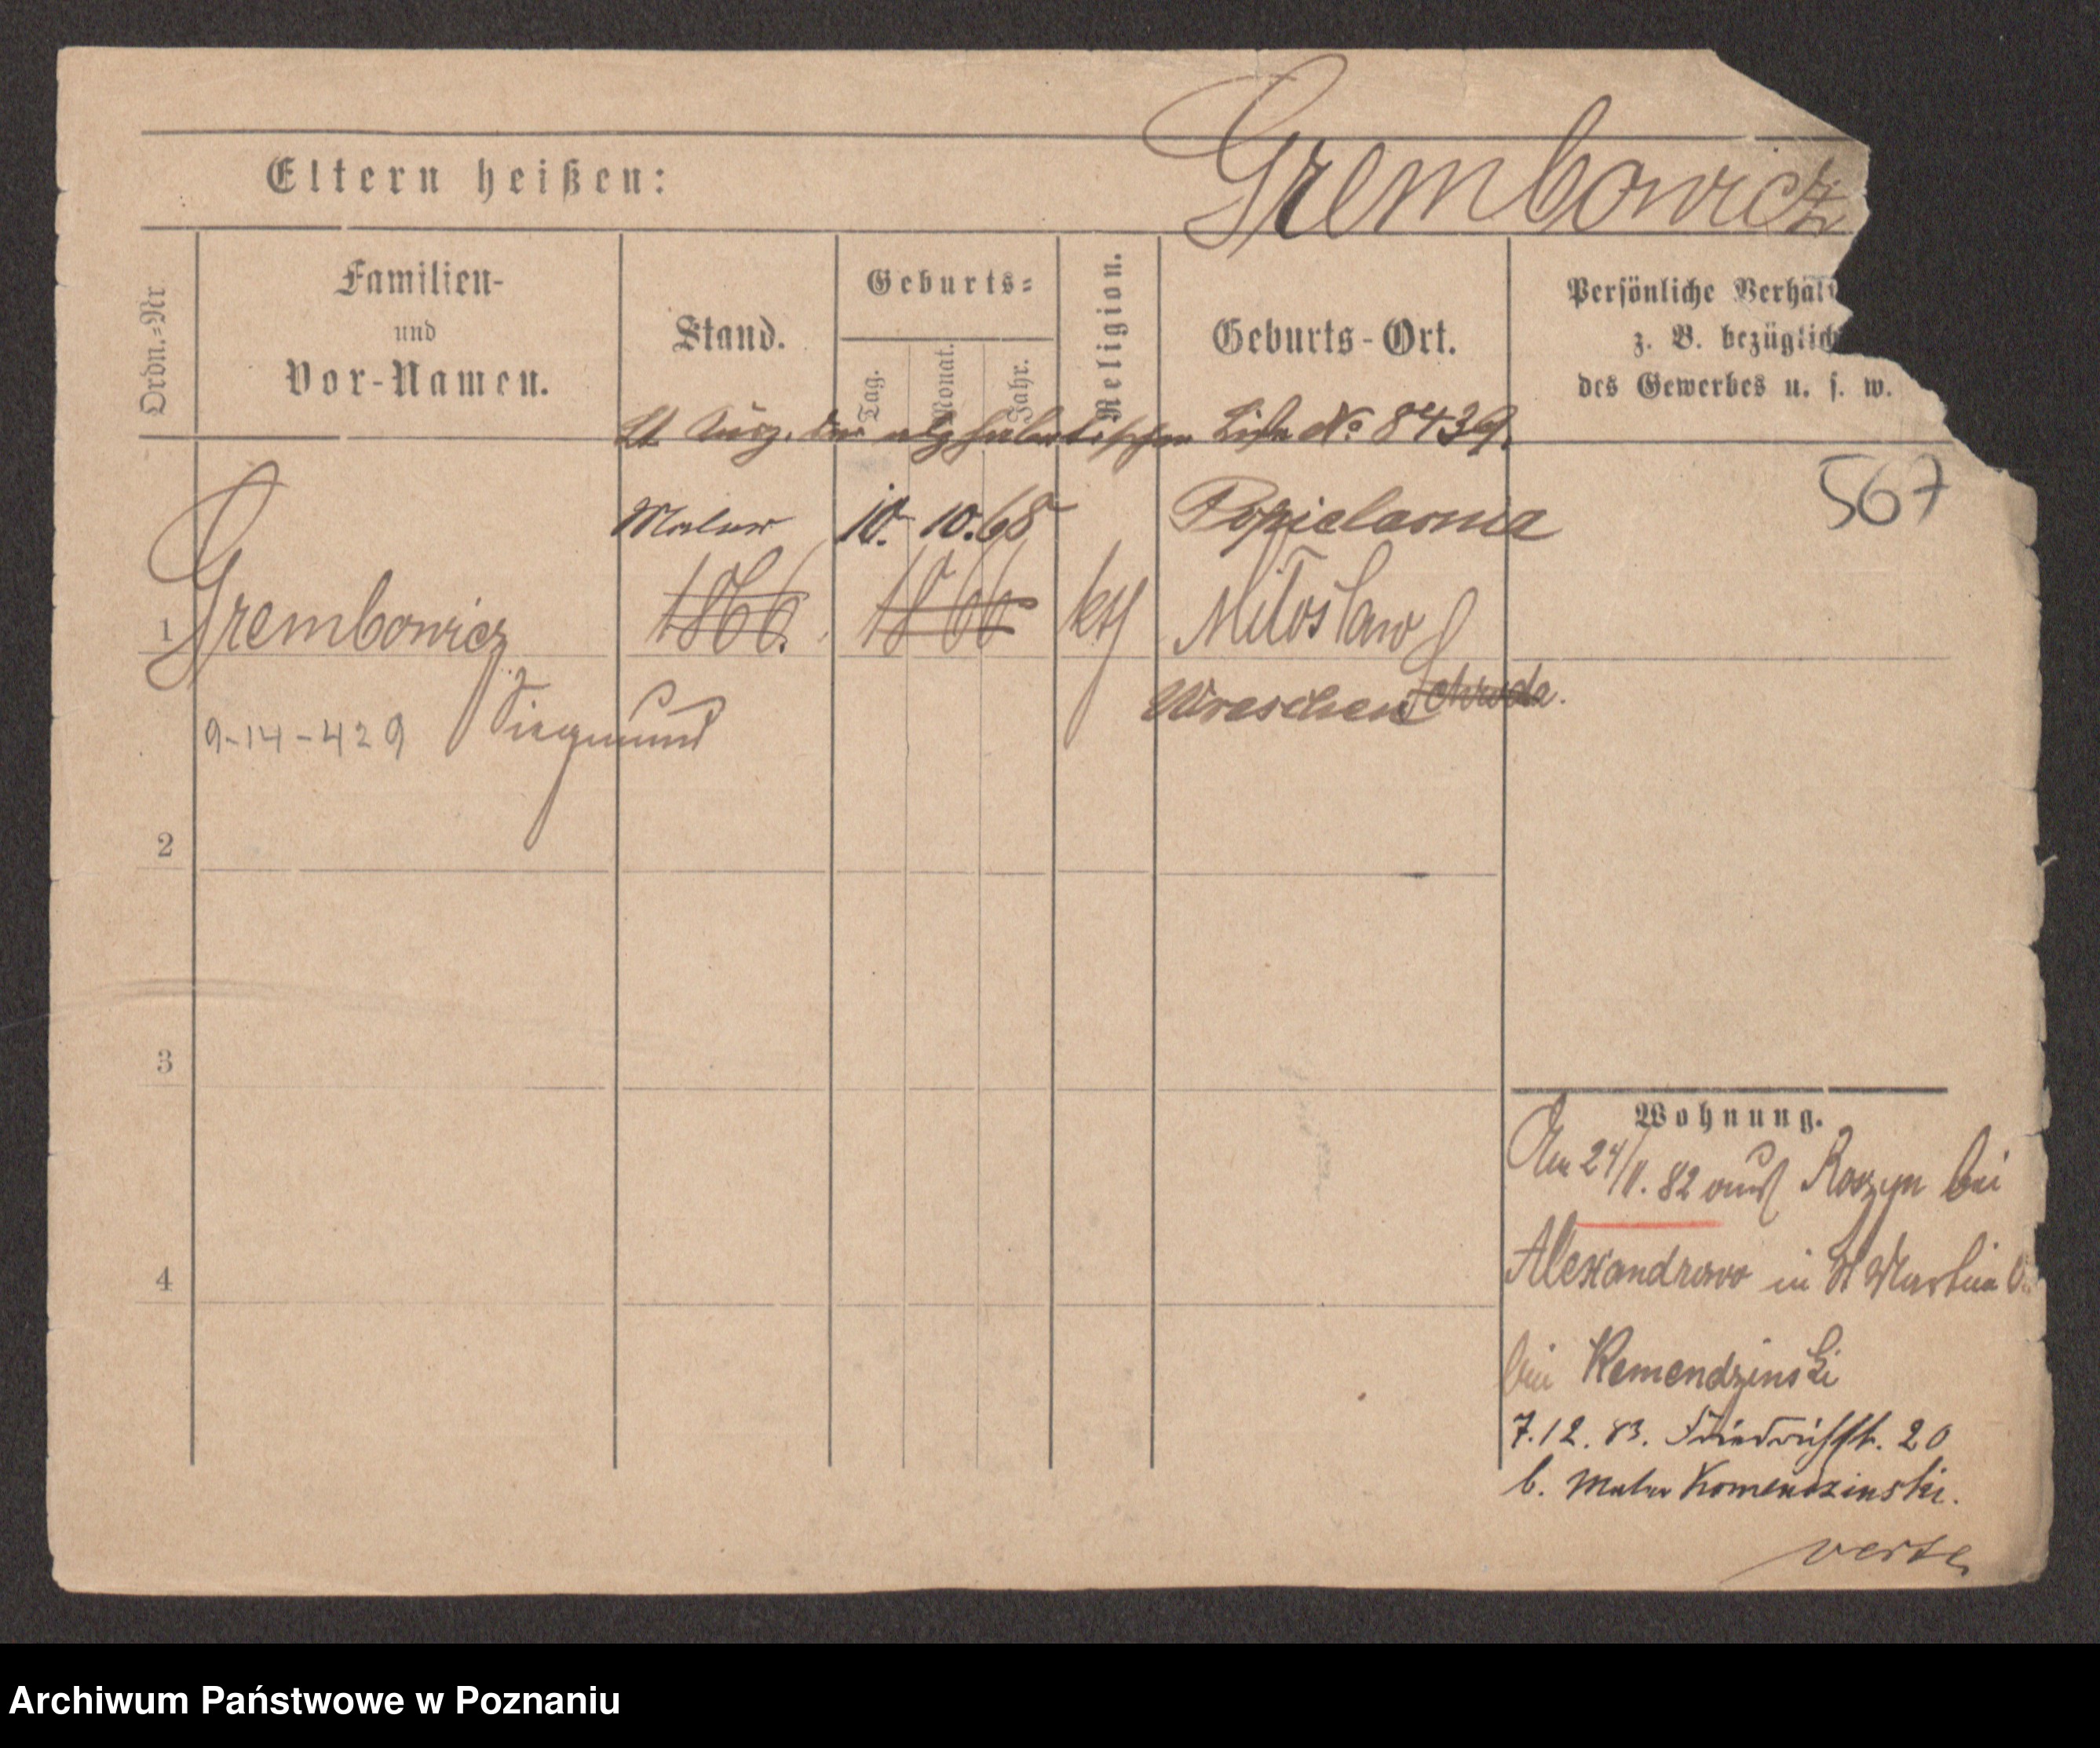 Grembowicz
Eltern heißen:
Ordn.=Nr
Familien-
und
Vor-Namen.
Stand.
Geburts=
Tag.
Monat.
Jahr.
Religion.
Geburts-Ort.
Persönliche Verhäl
z. B. bezüglich
des Gewerbes u. s. w.
Lt. Ausz. der alphabetischen Liste No. 8439.
567
Maler 10. 10. 68 Popielarnia
1 Grembowicz 1866. 1866 kth Miloslaw
Wreschen Schroda.
9-14-429 Siegmund
2
3
4
Wohnung.
Am 24/11. 82 aus Roszyn bei
Alexandrowo in St Martin
bei Kemendzinski
7.12.83. Friedrichstr. 20
b. Maler Komendzinski.
verte
Archiwum Państwowe w Poznaniu